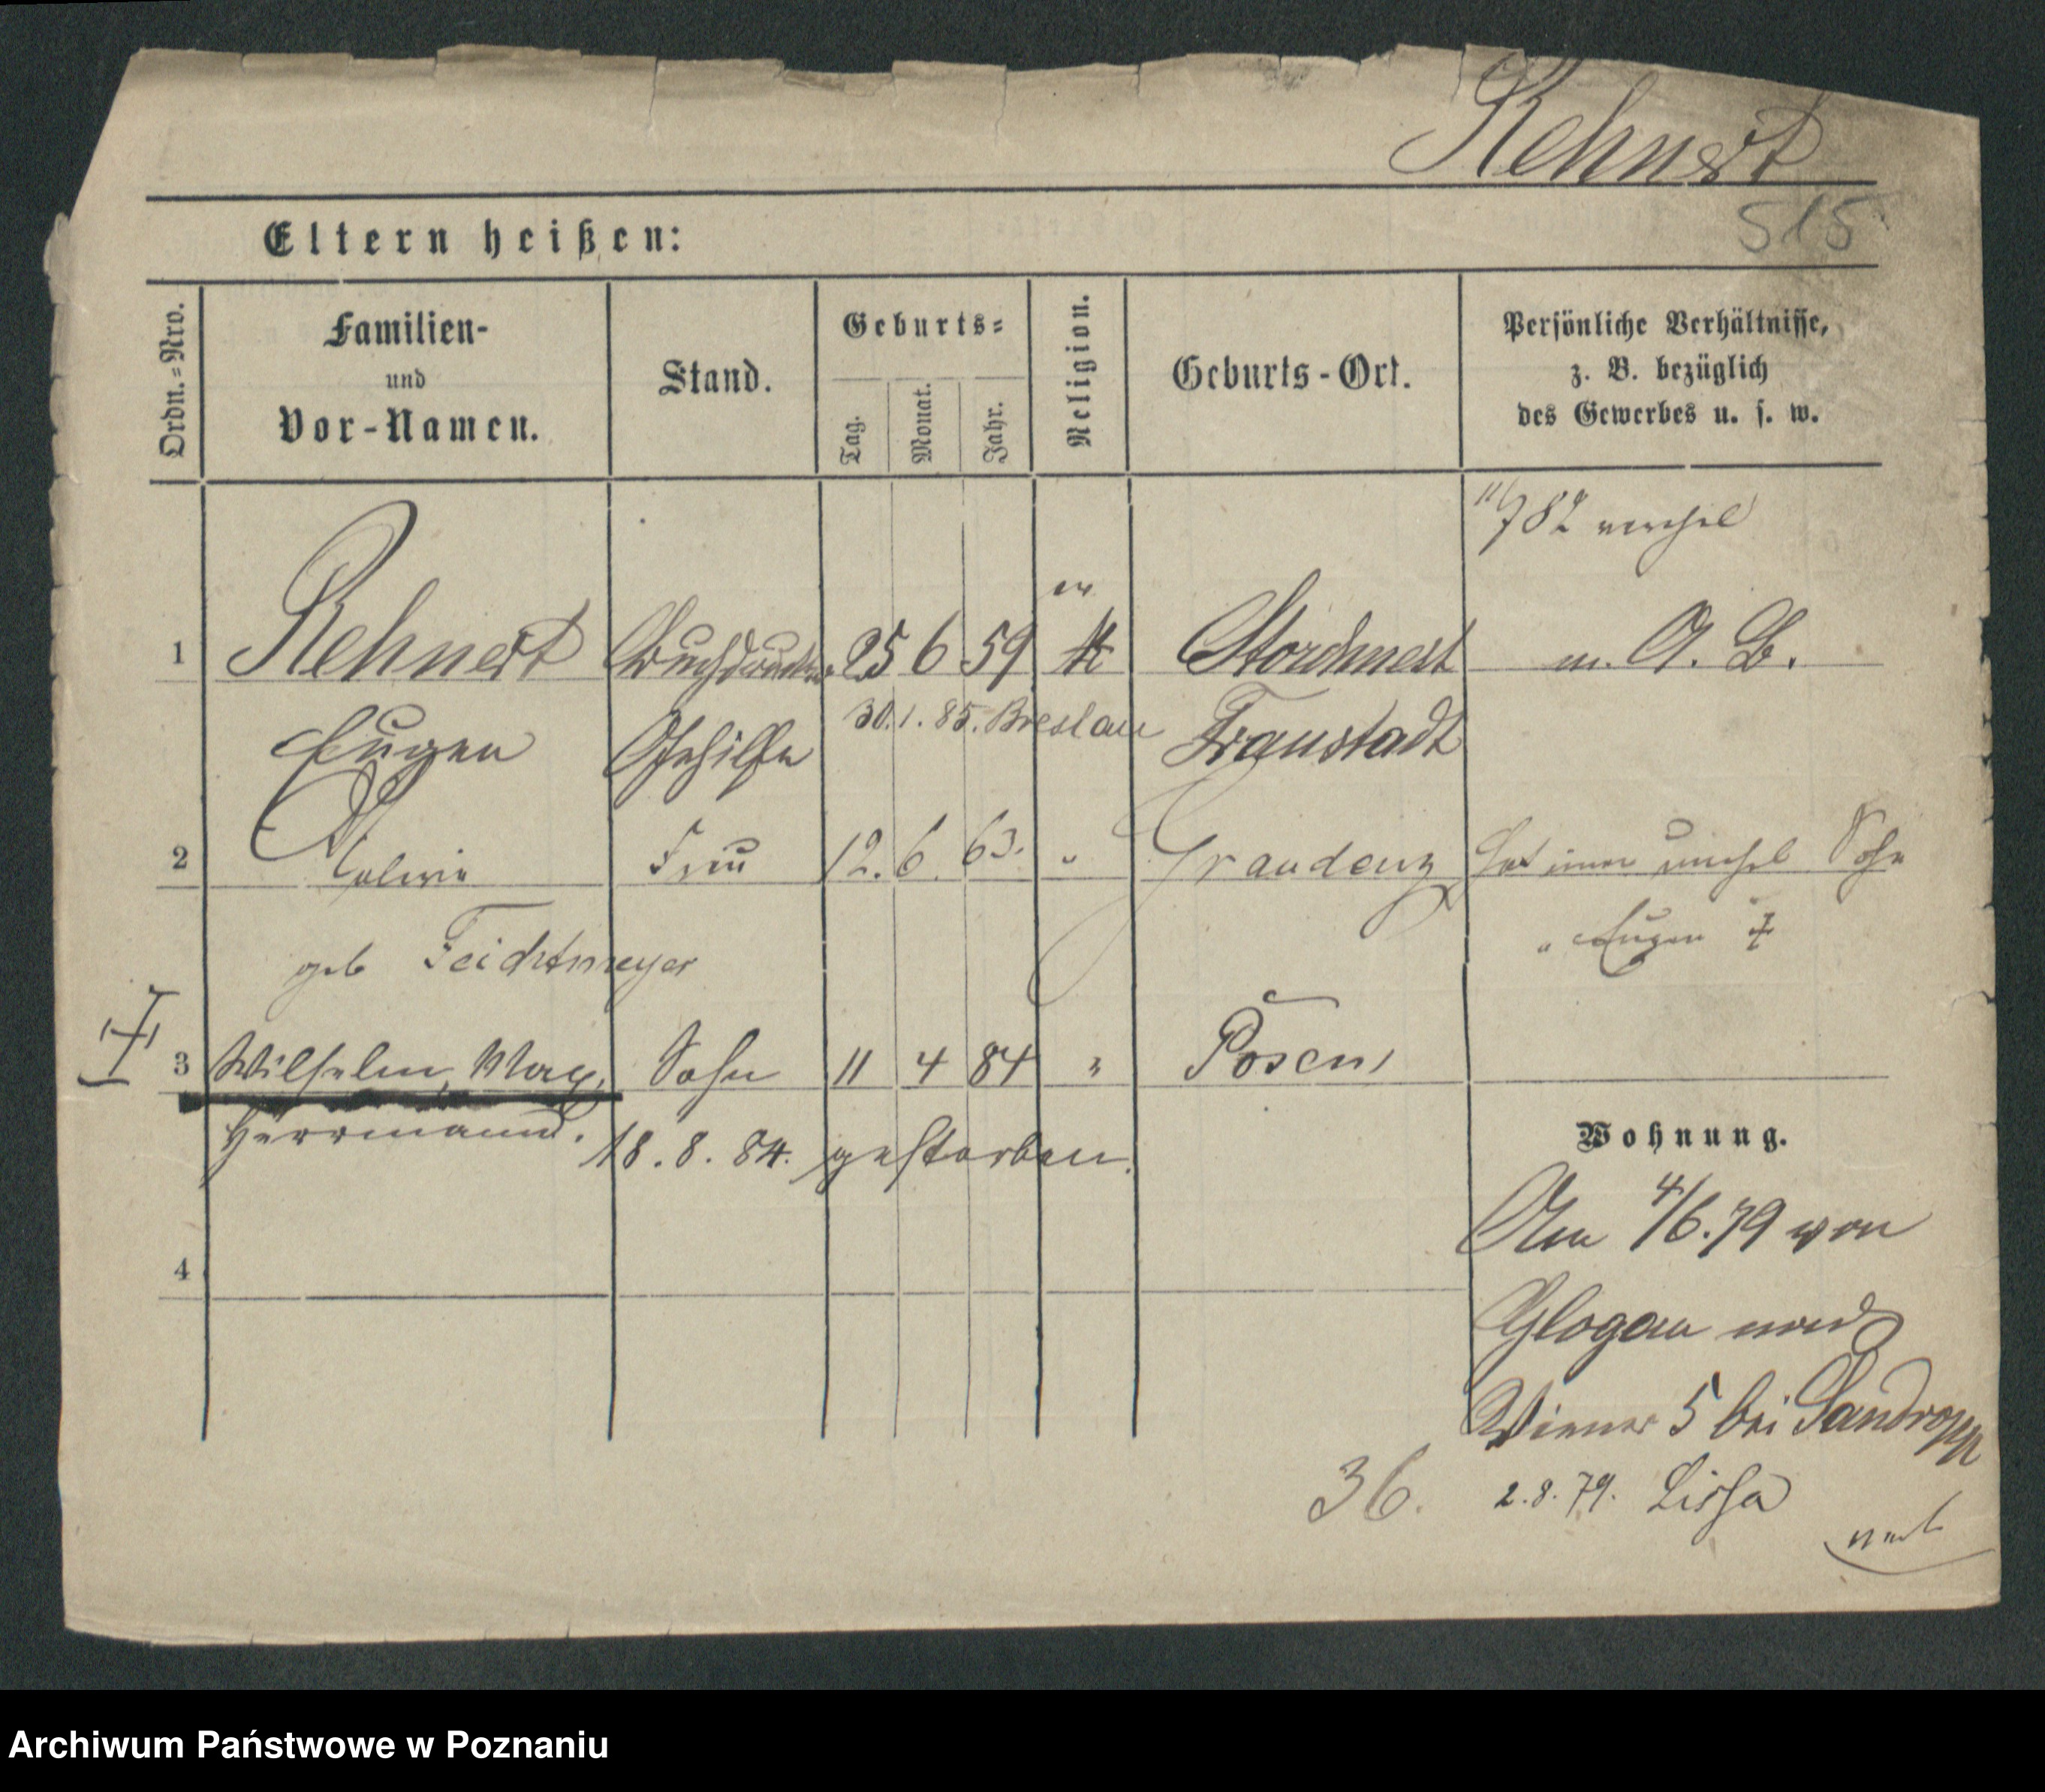 Rehnert
515
Eltern heißen:
Ordn.-Nro.
Familien-
und
Vor-Namen.
Stand.
Geburts-
Tag.
Monat.
Jahr.
Religion.
Geburts-Ort.
Persönliche Verhältnisse,
z. B. bezüglich
des Gewerbes u. s. w.
11/7 82
ev
1 Rehnert Buchdrucker 25 6 59 Storchnest m. A. B.
Eugen Gehilfe 30.1.85. Breslau Fraustadt
2 Frau 12. 6. 63. " Graudenz Hat einen unehel Sohn
" Eugen
geb Feichtmeyer
3 Wilhelm, Max, Sohn 11 4 84 " Posen
Herrmann. 18. 8. 84. gestorben.
Wohnung.
Am 4/6.79 von
4
Glogau
Wiener 5 bei
36. 2. 8. 79. Lissa
Archiwum Państwowe w Poznaniu